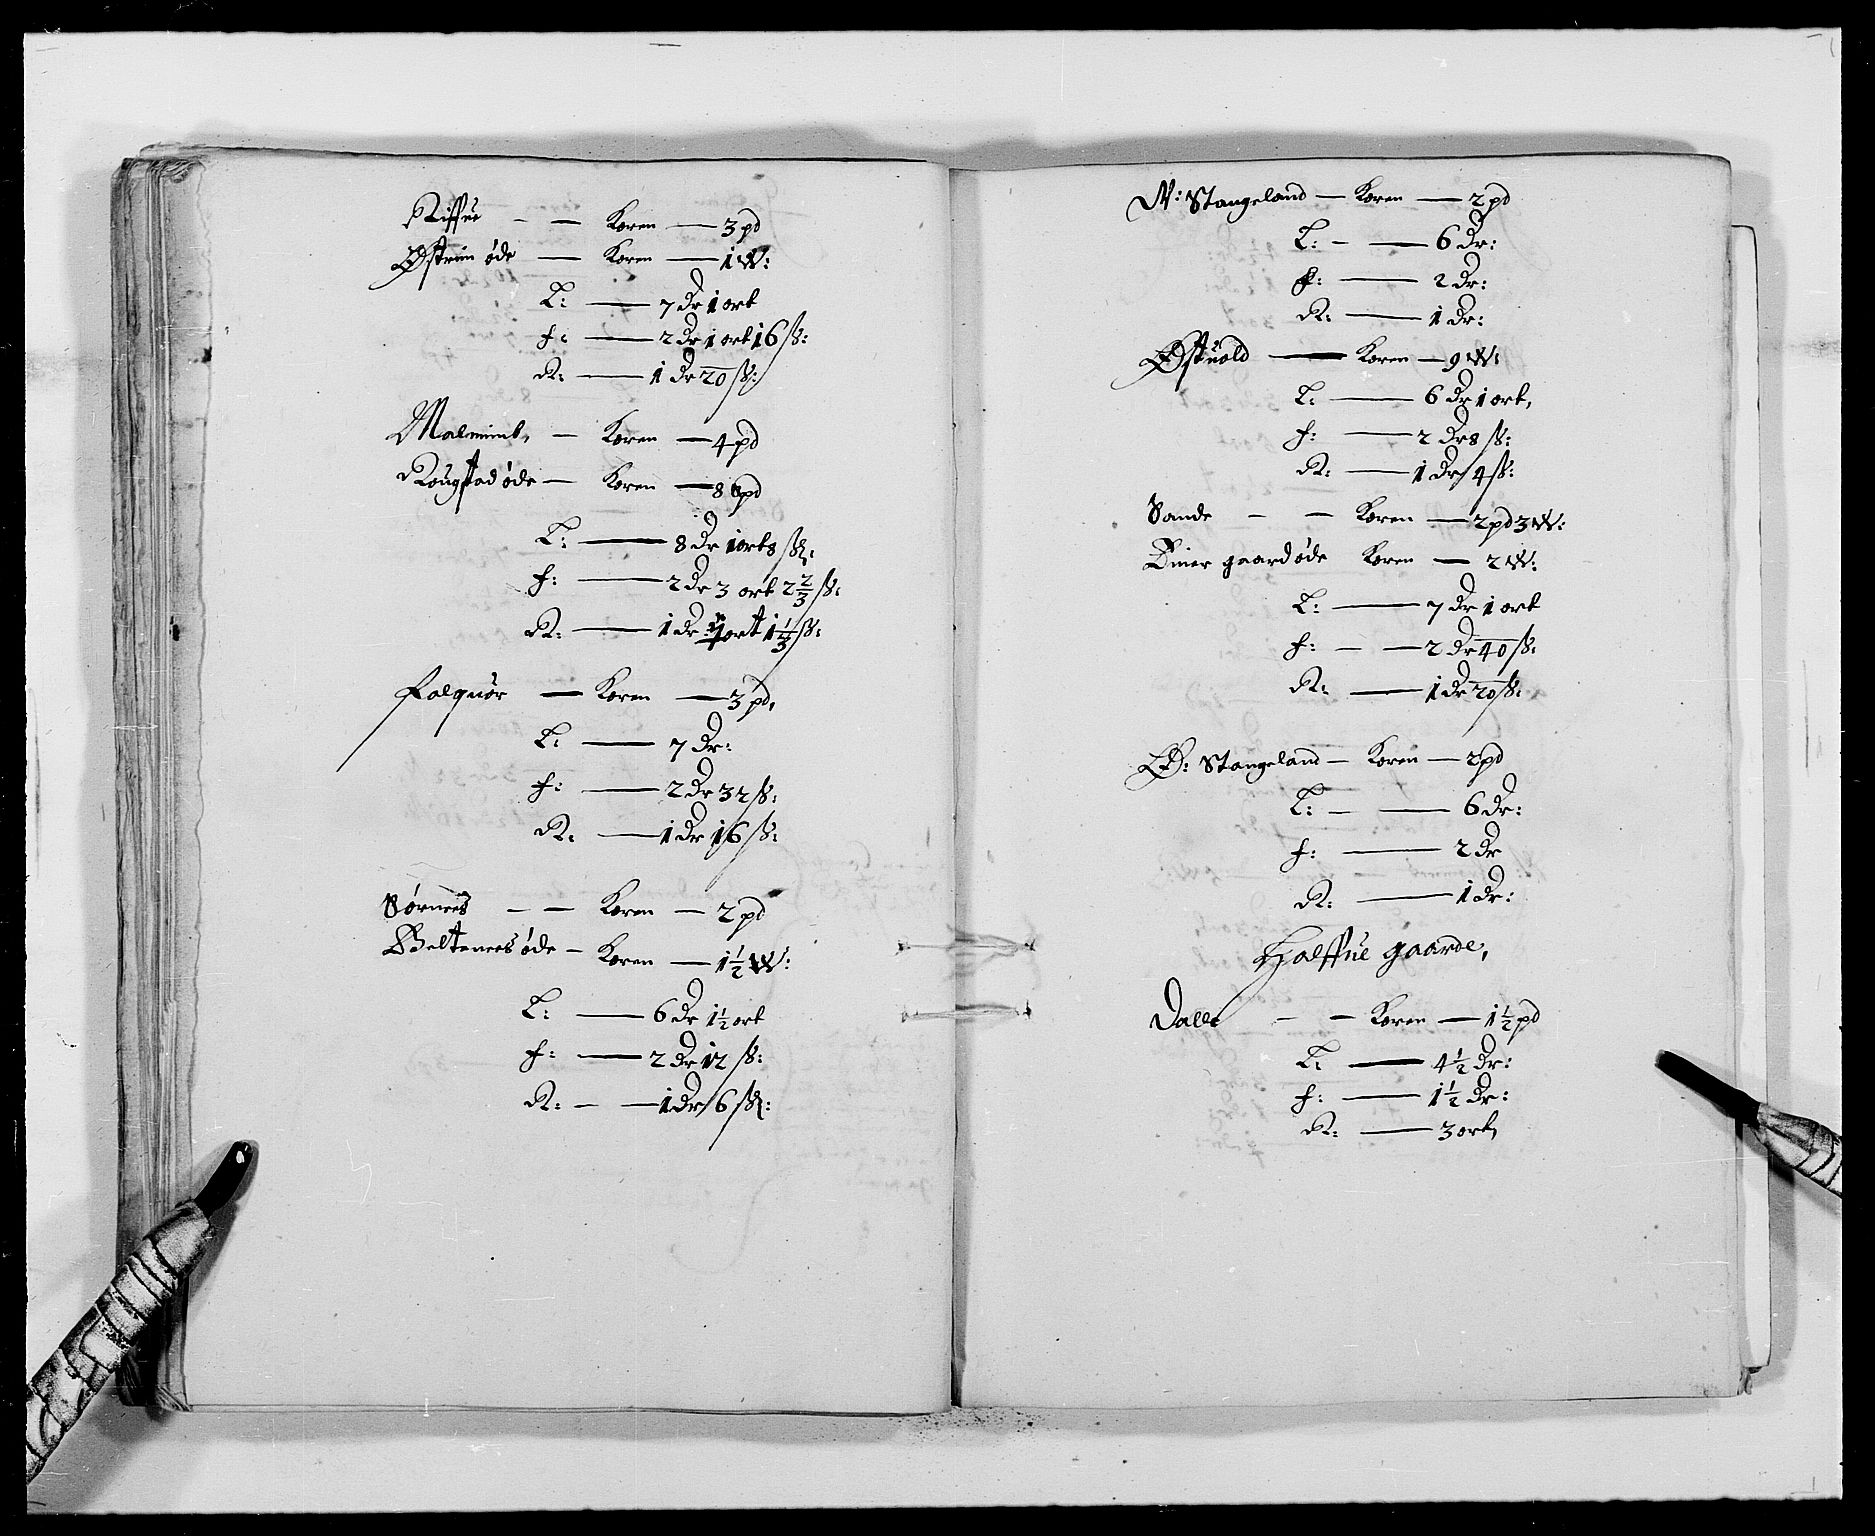 Riffue - - Koren - 3 pd
Østrim øde - Koren - 1 W:
L: - 7 dr 1 ort
f: - 2 dr 1 ort 16 ß:
R: - 1 dr 20 ß:
Malmimb, - Koren - 4 pd
Rougstad øde - Koren - 8 pd
L: - 8 dr 1 ort 8 ß:
f: - 2 dr 3 ort 2 2/3 ß:
R: - 1 dr 1 ort 1 1/3 ß:
Falquør - Koren - 3 pd,
L: - 7 dr:
f: - 2 dr 32 ß:
R: - 1 dr 16 ß:
Sørnees - - Koren - 2 pd
Beltenees øde - Koren - 1 1/2 W:
L: - 6 dr 1 1/2 ort
f: - 2 dr 12 ß:
R: - - 1 dr 6 ß:
N: Stangeland - Koren - 2 pd
L: - - 6 dr:
f: - 2 dr:
R: - 1 dr:
Østuold - Koren - 9 W:
L: - 6 dr 1 ort,
f: - 2 dr 8 ß:
R: - 1 dr 4 ß:
Sande - - Koren - 2 pd 3 W:
Diner gaard øde Koren - 2 W:
L: - 7 dr 1 ort
f: - - 2 dr 40 ß:
R: - 1 dr 20 ß:
Ø: Stangeland - Koren - 2 pd
L: - - 6 dr:
f: - 2 dr
R: - 1 dr:
Halffue gaarde,
Dalle - - Koren - 1 1/2 pd
L: - 4 1/2 dr:
f: - 1 1/2 dr:
R: - 3 ort,